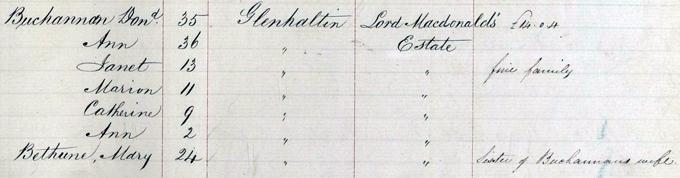 Buchannan Dond. 35 Glenhaltin Lord Macdonald's £14.0.4
Ann 36 " Estate
Janet 13 " " fine family
Marion 11 " "
Catherine 9 " "
Ann 2 " "
Bethune, Mary 24 " " Sister of Buchannans wife.